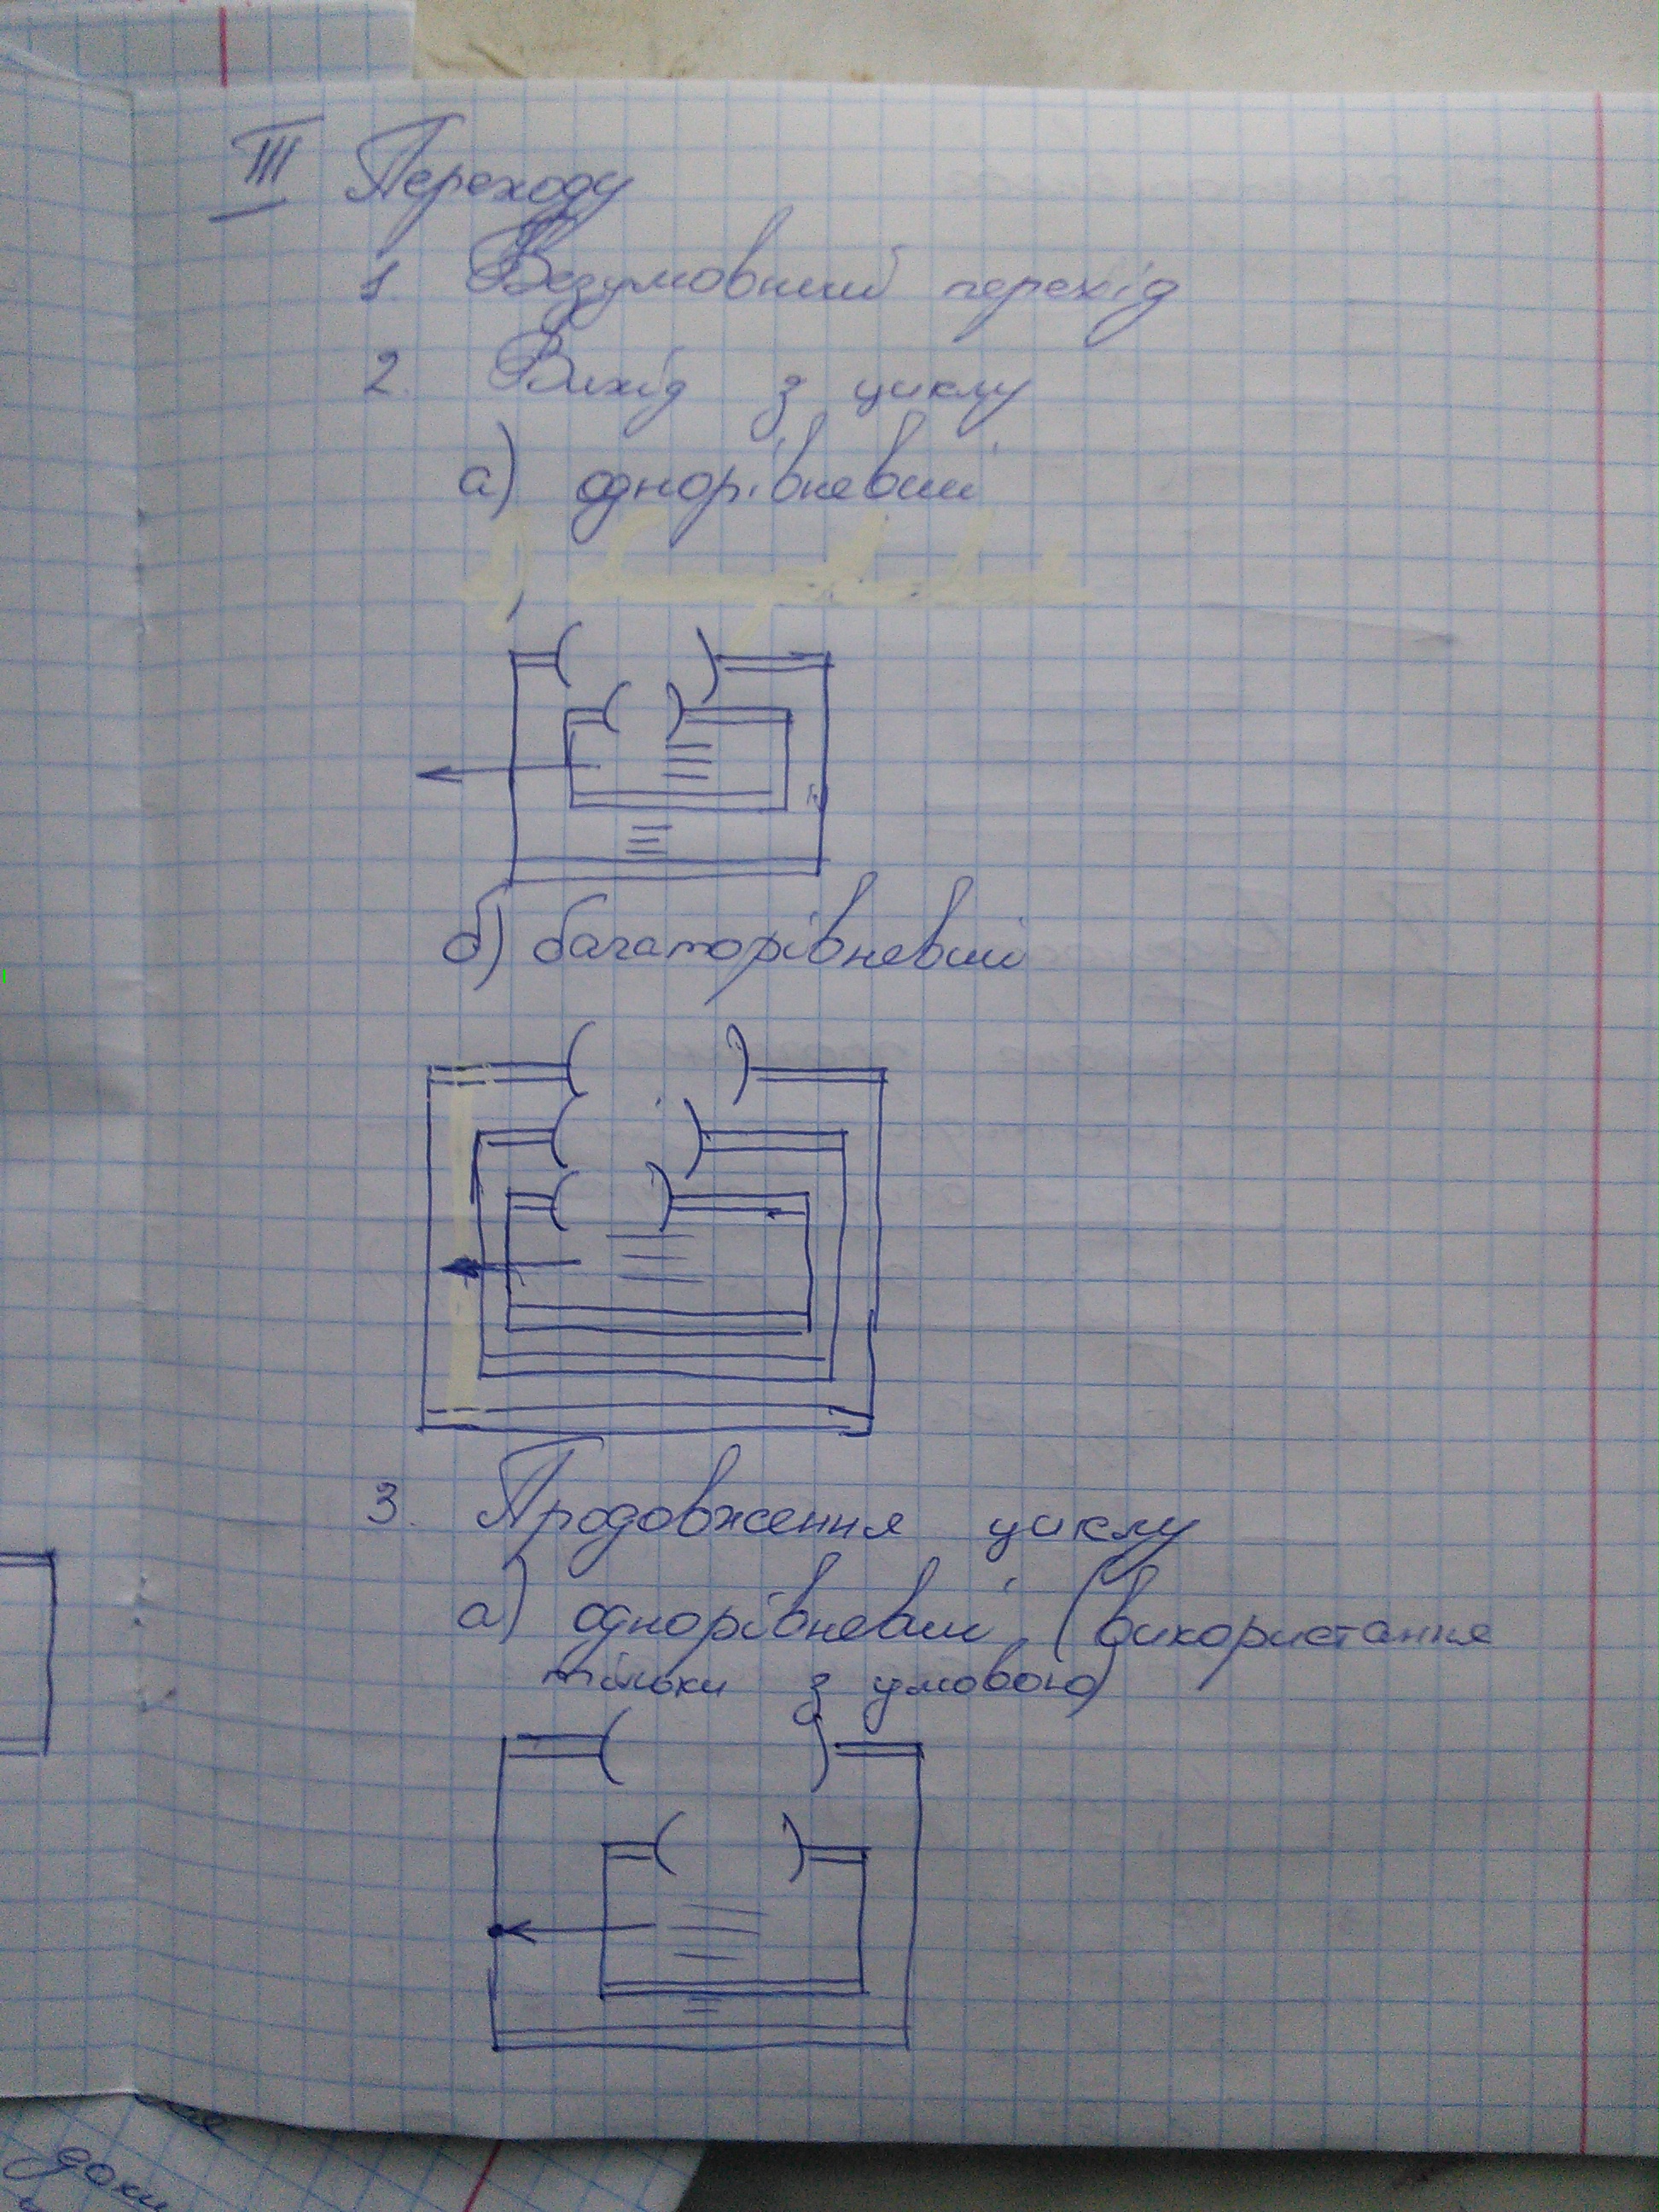 III Переходу
1. Безумовний перехід
2. Вихід з циклу
а) однорівневий
б) багаторівневий
3. Продовження циклу
а) однорівневий (використання
тільки з умовою)